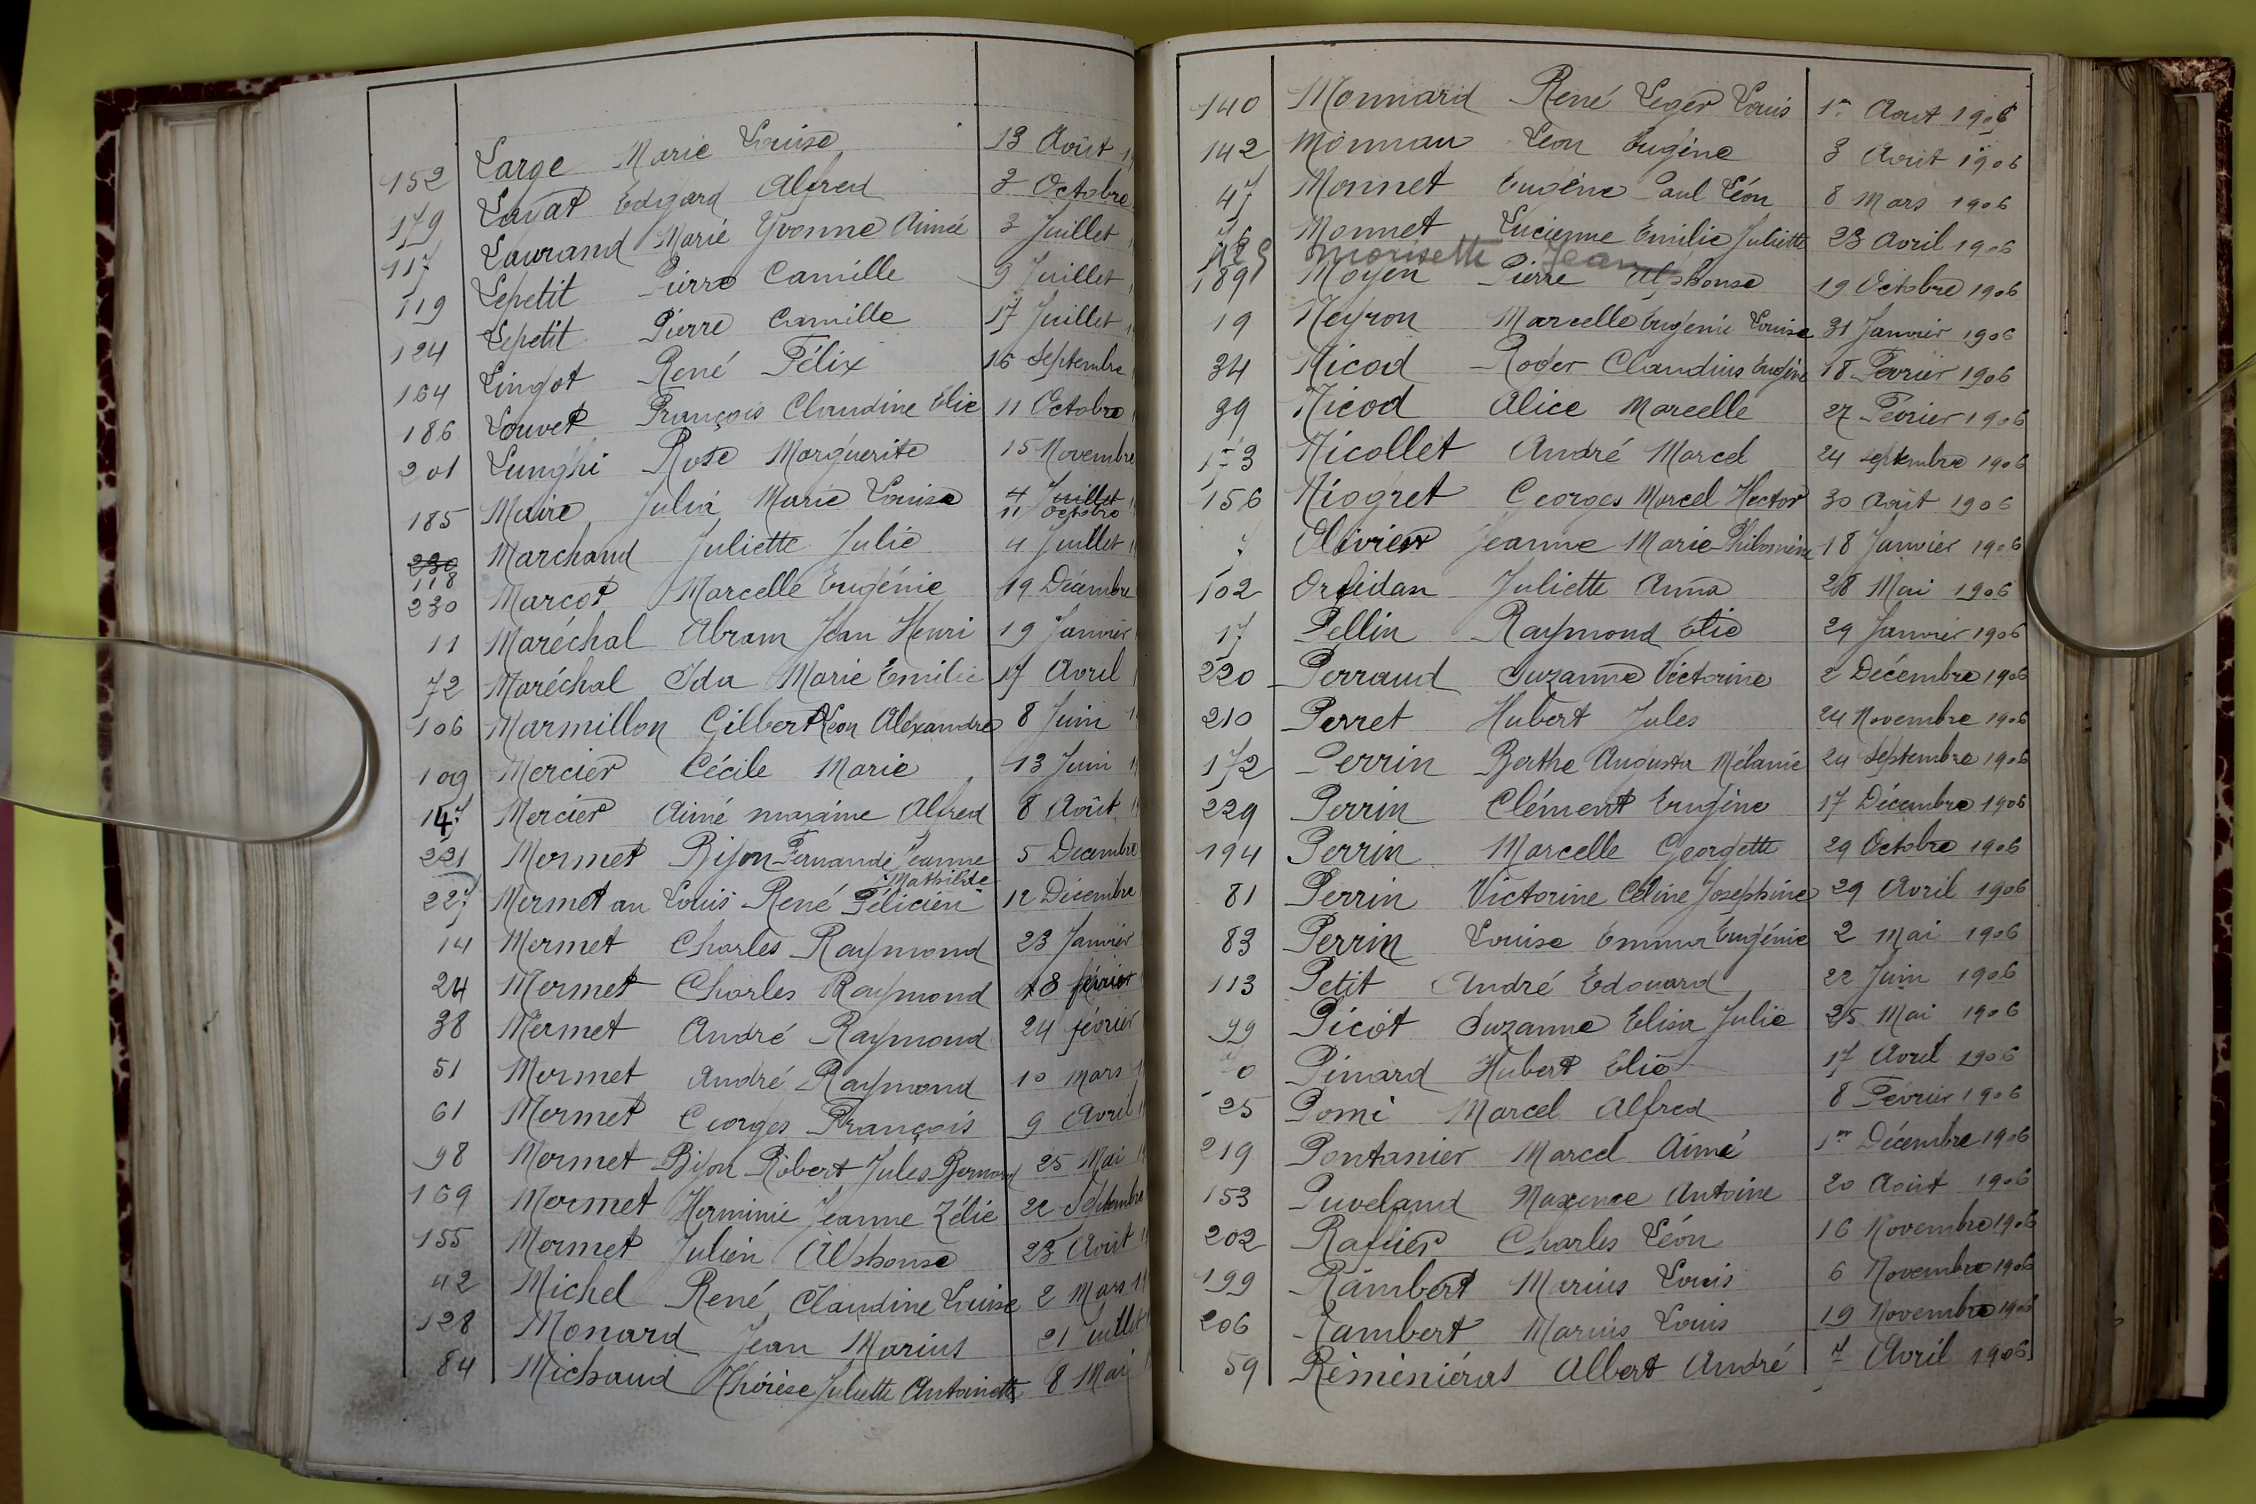 152 Large Marie Louise 13 Août
179 Lavat Edgard Alfred 3 Octobre
117 Laurand Marie Yvonne Aimée 3 Juillet
119 Lepetit Pierre Camille 9 Juillet
124 Lepetit Pierre Camille 17 Juillet
164 Lingot René Félix 16 Septembre
186 Louvet François Claudine Elie 11 Octobre
201 Lunghi Rose Marguerite 15 Novembre
185 Maire Julia Marie Louise 4 Juillet
11 Octobre
230 Marchand Juliette Julie 4 Juillet
118
230 Marcot Marcelle Eugénie 19 Décembre
11 Maréchal Abram Jean Henri 19 Janvier
72 Maréchal Ida Marie Emilie 17 Avril
106 Marmillon Gilbert Léon Alexandre 8 Juin
109 Mercier Cécile Marie 13 Juin
147 Mercier Aimé maxime Alfred 8 Août
221 Mermet Bijon Fernande Jeanne 5 Decembre
Mathilde
227 Mermet au Louis René Félicien 12 Décembre
14 Mermet Charles Raymond 23 Janvier
24 Mermet Charles Raymond 8 février
38 Mermet André Raymond 24 février
51 Mermet André Raymond 10 mars
61 Mermet Georges François 9 Avril
98 Mermet Bijon Robert Jules Bernard 25 Mai
169 Mermet Herminie Jeanne Zélie 22 Septembre
155 Mermet Julien Alphonse 23 Août
42 Michel René Claudine Louise 2 Mars
128 Monard Jean Marius 21 Juillet
84 Michaud Thérèse Juliette Antoinette 8 Mai
140 Monnard René Léger Louis 1er Aout 1906
142 Monnau Léon Eugène 3 Août 1906
47 Monnet Eugène Paul Léon 8 Mars 1906
76 Monnet Lucienne Emilie Juliette 23 Avril 1906
Morisetti Jean
189 Moyen Pierre Alphonse 19 Octobre 1906
19 Neyron Marcelle Eugénie Louise 31 Janvier 1906
34 Nicod Roger Claudius Eugène 18 Février 1906
39 Nicod Alice Marcelle 27 Février 1906
173 Nicollet André Marcel 24 septembre 1906
156 Niogret Georges Marcel Hector 30 Août 1906
7 Olivier Jeanne Marie Philomène 18 Janvier 1906
102 Orfeidan Juliette Anna 28 Mai 1906
17 Pellin Raymond Elie 29 Janvier 1906
220 Perraud Suzanne Victorine 2 Décembre 1906
210 Perret Hubert Jules 24 Novembre 1906
172 Perrin Berthe Augusta Mélanie 24 Septembre 1906
229 Perrin Clément Eugène 17 Décembre 1906
194 Perrin Marcelle Georgette 29 Octobre 1906
81 Perrin Victorine Céline Joséphine 29 Avril 1906
83 Perrin Louise Emma Eugénie 2 Mai 1906
113 Petit André Edouard 22 Juin 1906
99 Picot Suzanne Elisa Julie 25 Mai 1906
Pinard Hubert Elie 17 Avril 1906
25 Pomi Marcel Alfred 8 Février 1906
219 Pontanier Marcel Aimé 1er Décembre 1906
153 Puveland Maxence Antoine 20 Août 1906
202 Rafier Charles Léon 16 Novembre 1906
199 Rambert Marius Louis 6 Novembre 1906
206 Rambert Marius Louis 19 Novembre 1906
59 Réméniéras Albert André 7 Avril 1906